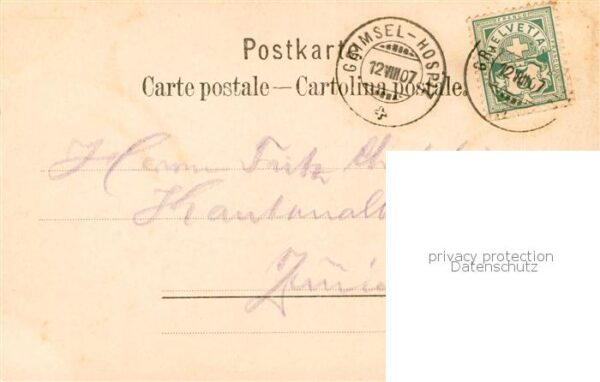 Postkarte
Carte postale — Cartolina postale.
GRIMSEL-HOSPIZ
12 VIII 07
FRANCO
HELVETIA
12 VIII 07
Herrn Fritz
Kantonalb
Züri
privacy protection
Datenschutz